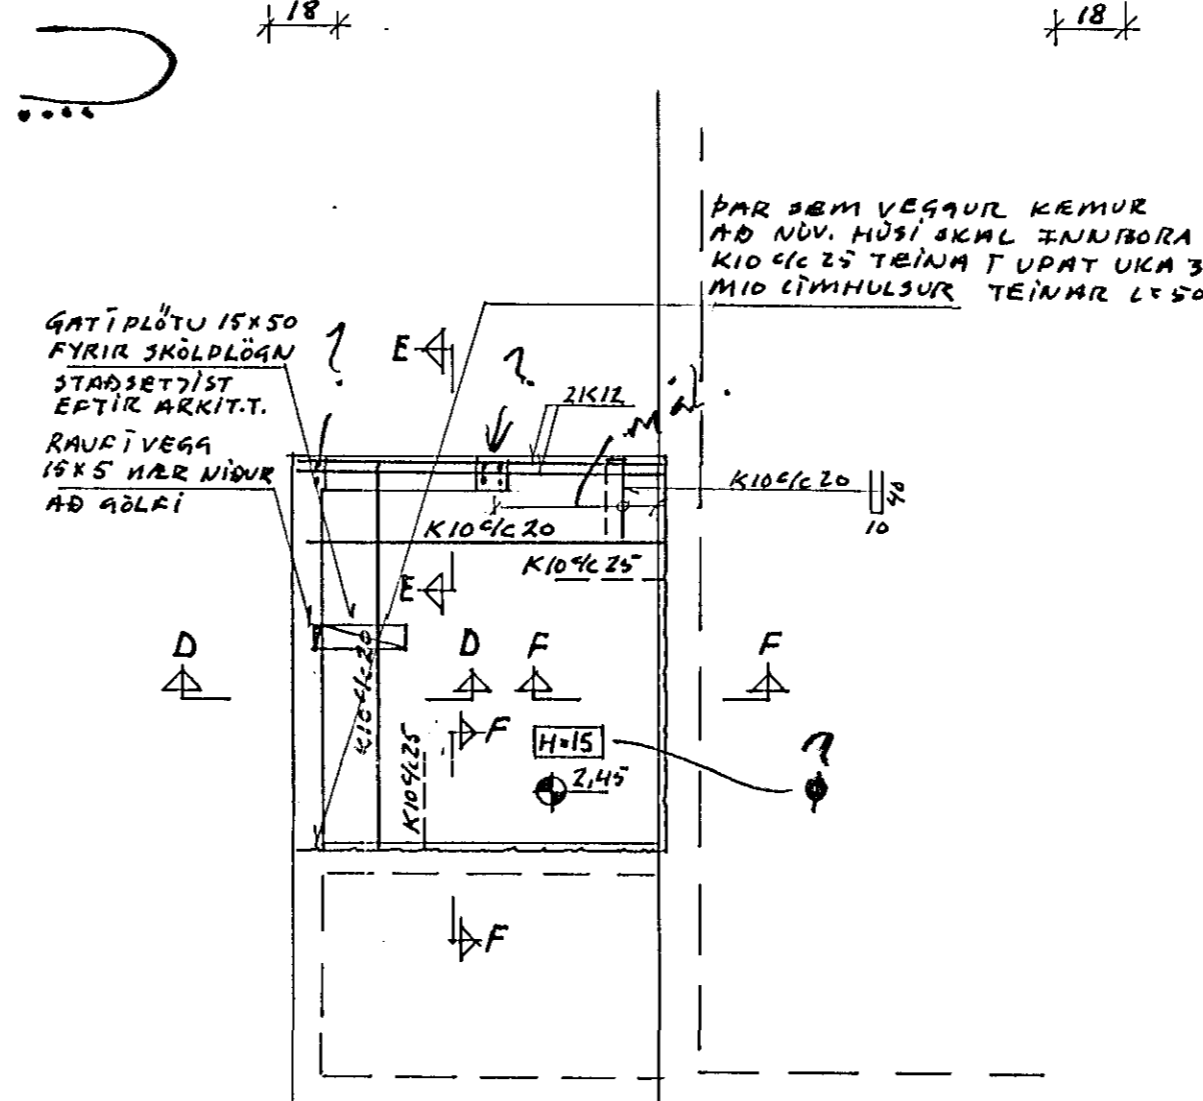 18
18
ÞAR SEM VEGGUR KEMUR
AÐ NÚV. HÚSI SKAL INNBORA
K10 c/c 25 TEINA
M10 LÍMHULSUR TEINAR L=50
GAT Í PLÖTU 15x50
FYRIR SKÓLPLÖGN
STAÐSETJIST
EFTIR ARKIT.T.
RAUF Í VEGG
15x5 NÆR NIÐUR
AÐ GÓLFI
?
E
?
2K12
Mál.
K10 c/c 20
40
10
K10 c/c 20
K10 c/c 25
E
D
D
F
F
K10 c/c 20
F
H=15
?
K10 c/c 25
2,45
F